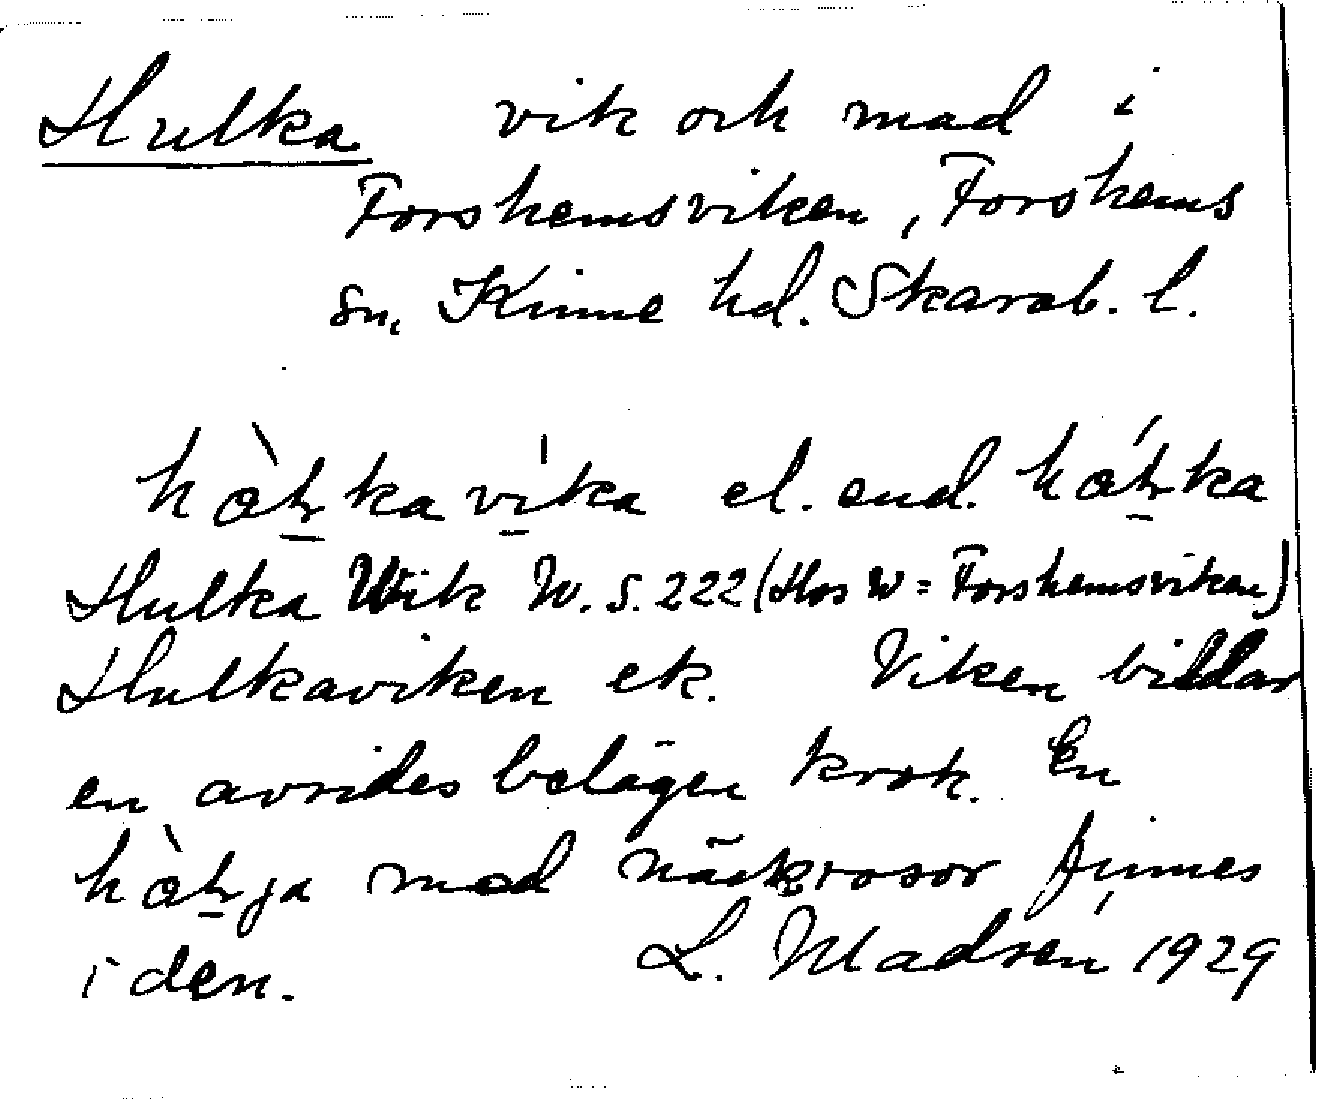 Hulka vik och mad i
Forshemsviken, Forshems
sn, Kinne hd. Skarab. l.
el. end.
Hulka Wik W. S. 222 (Hos W = Forshemsviken)
Hulkaviken ek. Viken bildar
en avsides belägen krok. En
med näckrosor finnes
i den. L. Madsén 1929